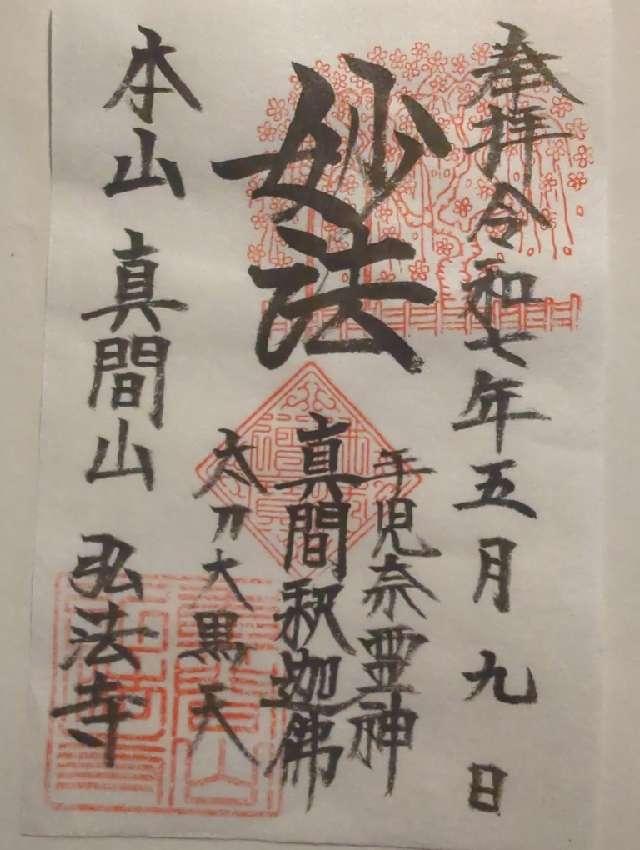 奉拝 令和七年五月九日
妙法
手児奈霊神
真間釈迦佛
太刀大黒天
本山 真間山 弘法寺